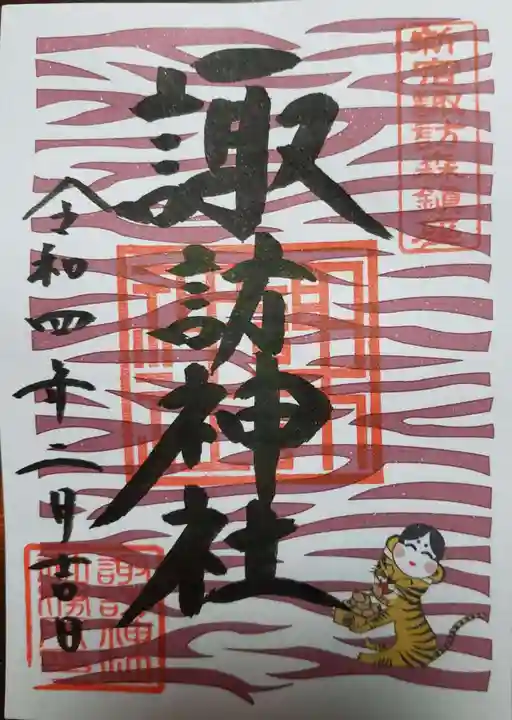 新宿諏訪森鎮座
諏訪神社
令和四年二月吉日